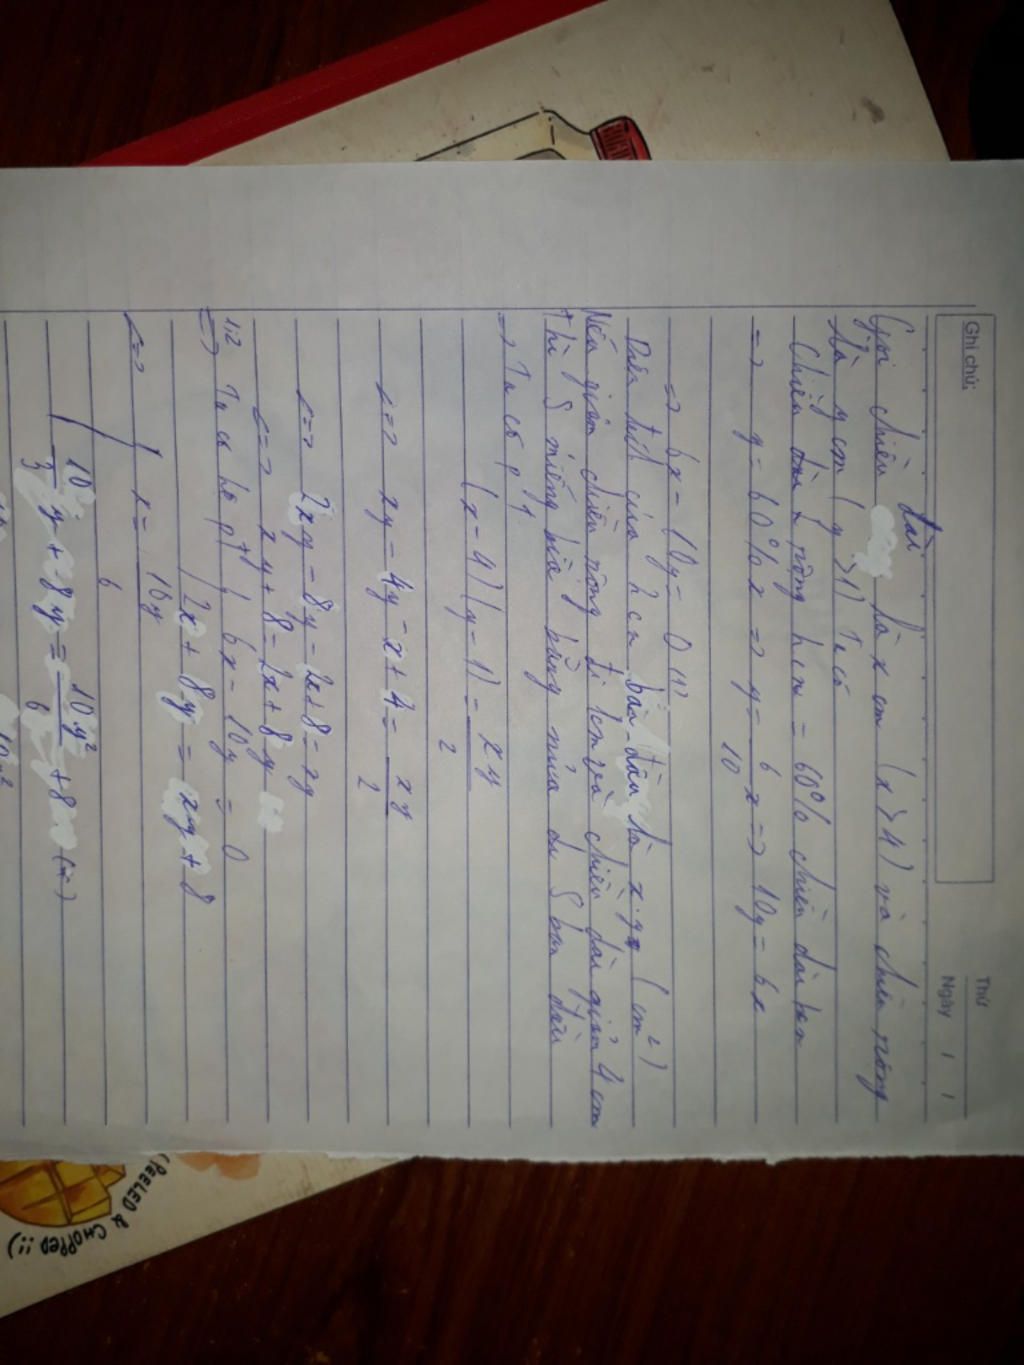 Ghi chú:
Thứ
Ngày / /
dài
Gọi chiều là x cm (x > 4) và chiều rộng
là y cm (y > 1) Ta có
Chiều rộng hcn = 60% chiều dài hcn
=> y = 60% x => y = 6/10 x => 10y = 6x
=> 6x - 10y = 0 (1)
Diện tích của hcn ban đầu là x.y (cm²)
Nếu giảm chiều rộng đi 1cm và chiều dài giảm 4 cm
thì S miếng bìa bằng nửa S ban đầu
=> Ta có pt
(x - 4)(y - 1) = xy/2
<=> xy - 4y - x + 4 = xy/2
<=> 2xy - 8y - 2x + 8 = xy
<=> xy + 8 = 2x + 8y
1;2 => Ta có hệ pt { 6x - 10y = 0
2x + 8y = xy + 8
<=> { x = 10y/6
10/3 y + 8y = 10y²/6 + 8 (*)
(PEELED & CHOPPED ;;)